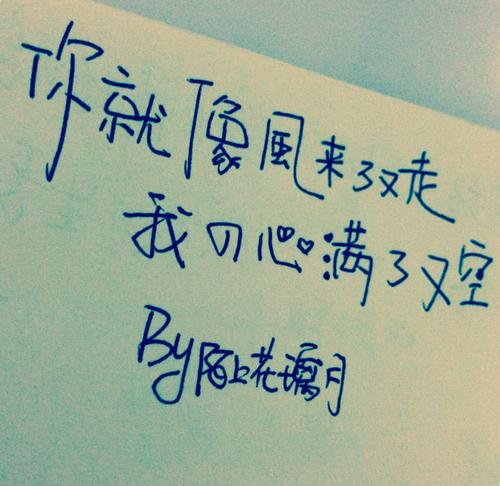 你就像風来了又走
我的心满了又空
By陌上花璃月